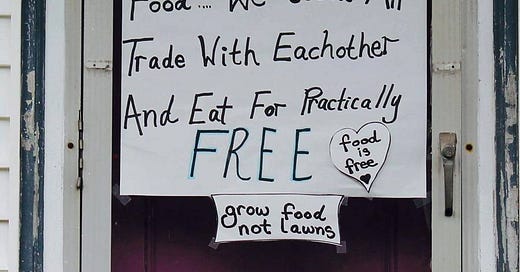 Food.... We
All
Trade With Eachother
And Eat For Practically
FREE
food
is
free
grow food
not lawns